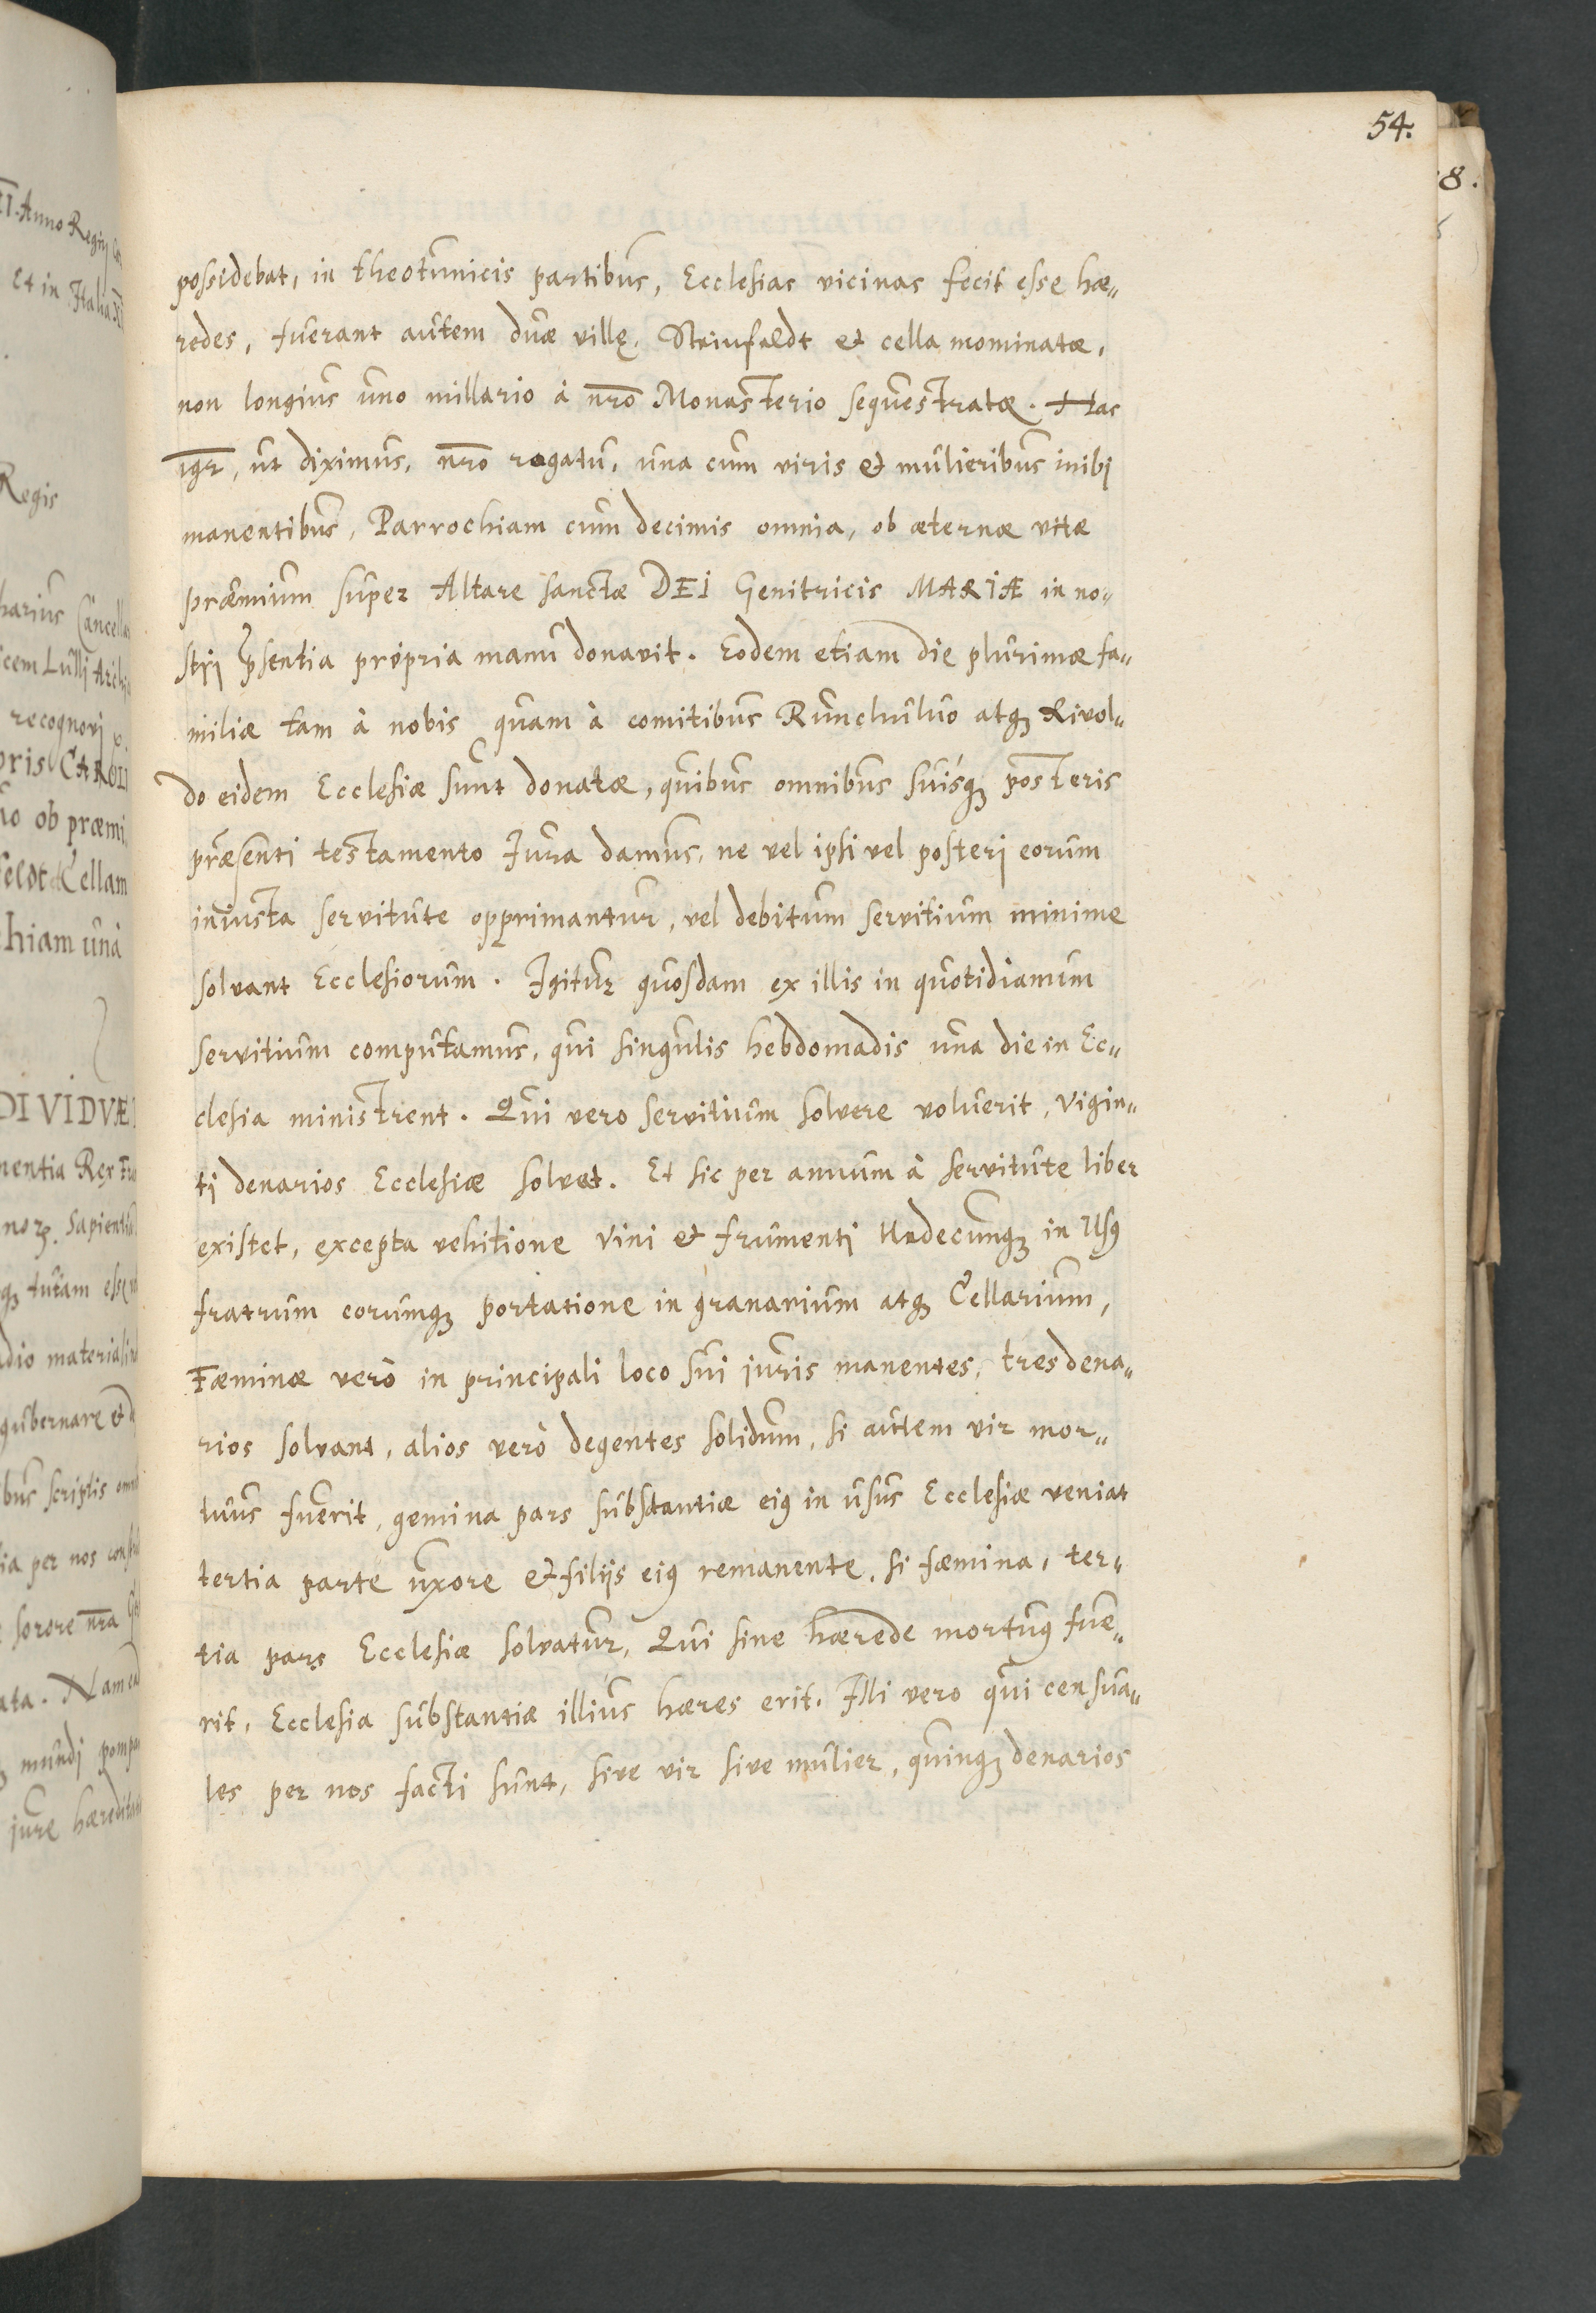 54.
possidebat, in theotunicis partibus, Ecclesias vicinas fecit esse hæ„
redes, fuerant autem duæ villę. Steinfeldt et cella nominatæ,
non longius uno millario à nr̄o Monasterio sequestratæ. Has
igr̄, ut diximus, nr̄o rogatu, una cum viris et mulieribus inibi
manentibus, Parrochiam cum decimis omnia, ob æternæ vitæ
præmium super Altare sanctæ DEI Genitricis MARIÆ in no„
stri p̄sentia propria manu donavit. Eodem etiam die plurimæ fa„
miliæ tam à nobis quam à comitibus atqꝫ Rivol„
do eidem Ecclesiæ sunt donatæ, quibus omnibus suisqꝫ posteris
præsenti testamento Jura damus, ne vel ipsi vel posteri eorum
iniusta servitute opprimantur, vel debitum servitium minime
solvant Ecclesiorum. Igitur quosdam ex illis in quotidianum
servitium computamus, qui singulis hebdomadis una die in Ec„
clesia ministrent. Qui vero servitium solvere voluerit, vigin„
ti denarios Ecclesiæ solvat. Et sic per annum à servitute liber
existet, excepta vehitione vini et frumenti undecunqꝫ in Usꝰ
fratrum eorumqꝫ portatione in granarium atqꝫ Cellarium,
Fæminæ verò in principali loco sui juris manentes, tres dena„
rios solvant, alios verò degentes solidum, si autem vir mor„
tuus fuerit, gemina pars substantiæ eiꝰ in usus Ecclesiæ veniat
tertia parte uxore et filijs eiꝰ remanente, si fæmina, ter„
tia pars Ecclesiæ solvatur, Qui sine hærede mortuꝰ fue„
rit, Ecclesia substantiæ illius hæres erit. Illi vero qui censua„
les per nos facti sunt, sive vir sive mulier, quinqꝫ denarios